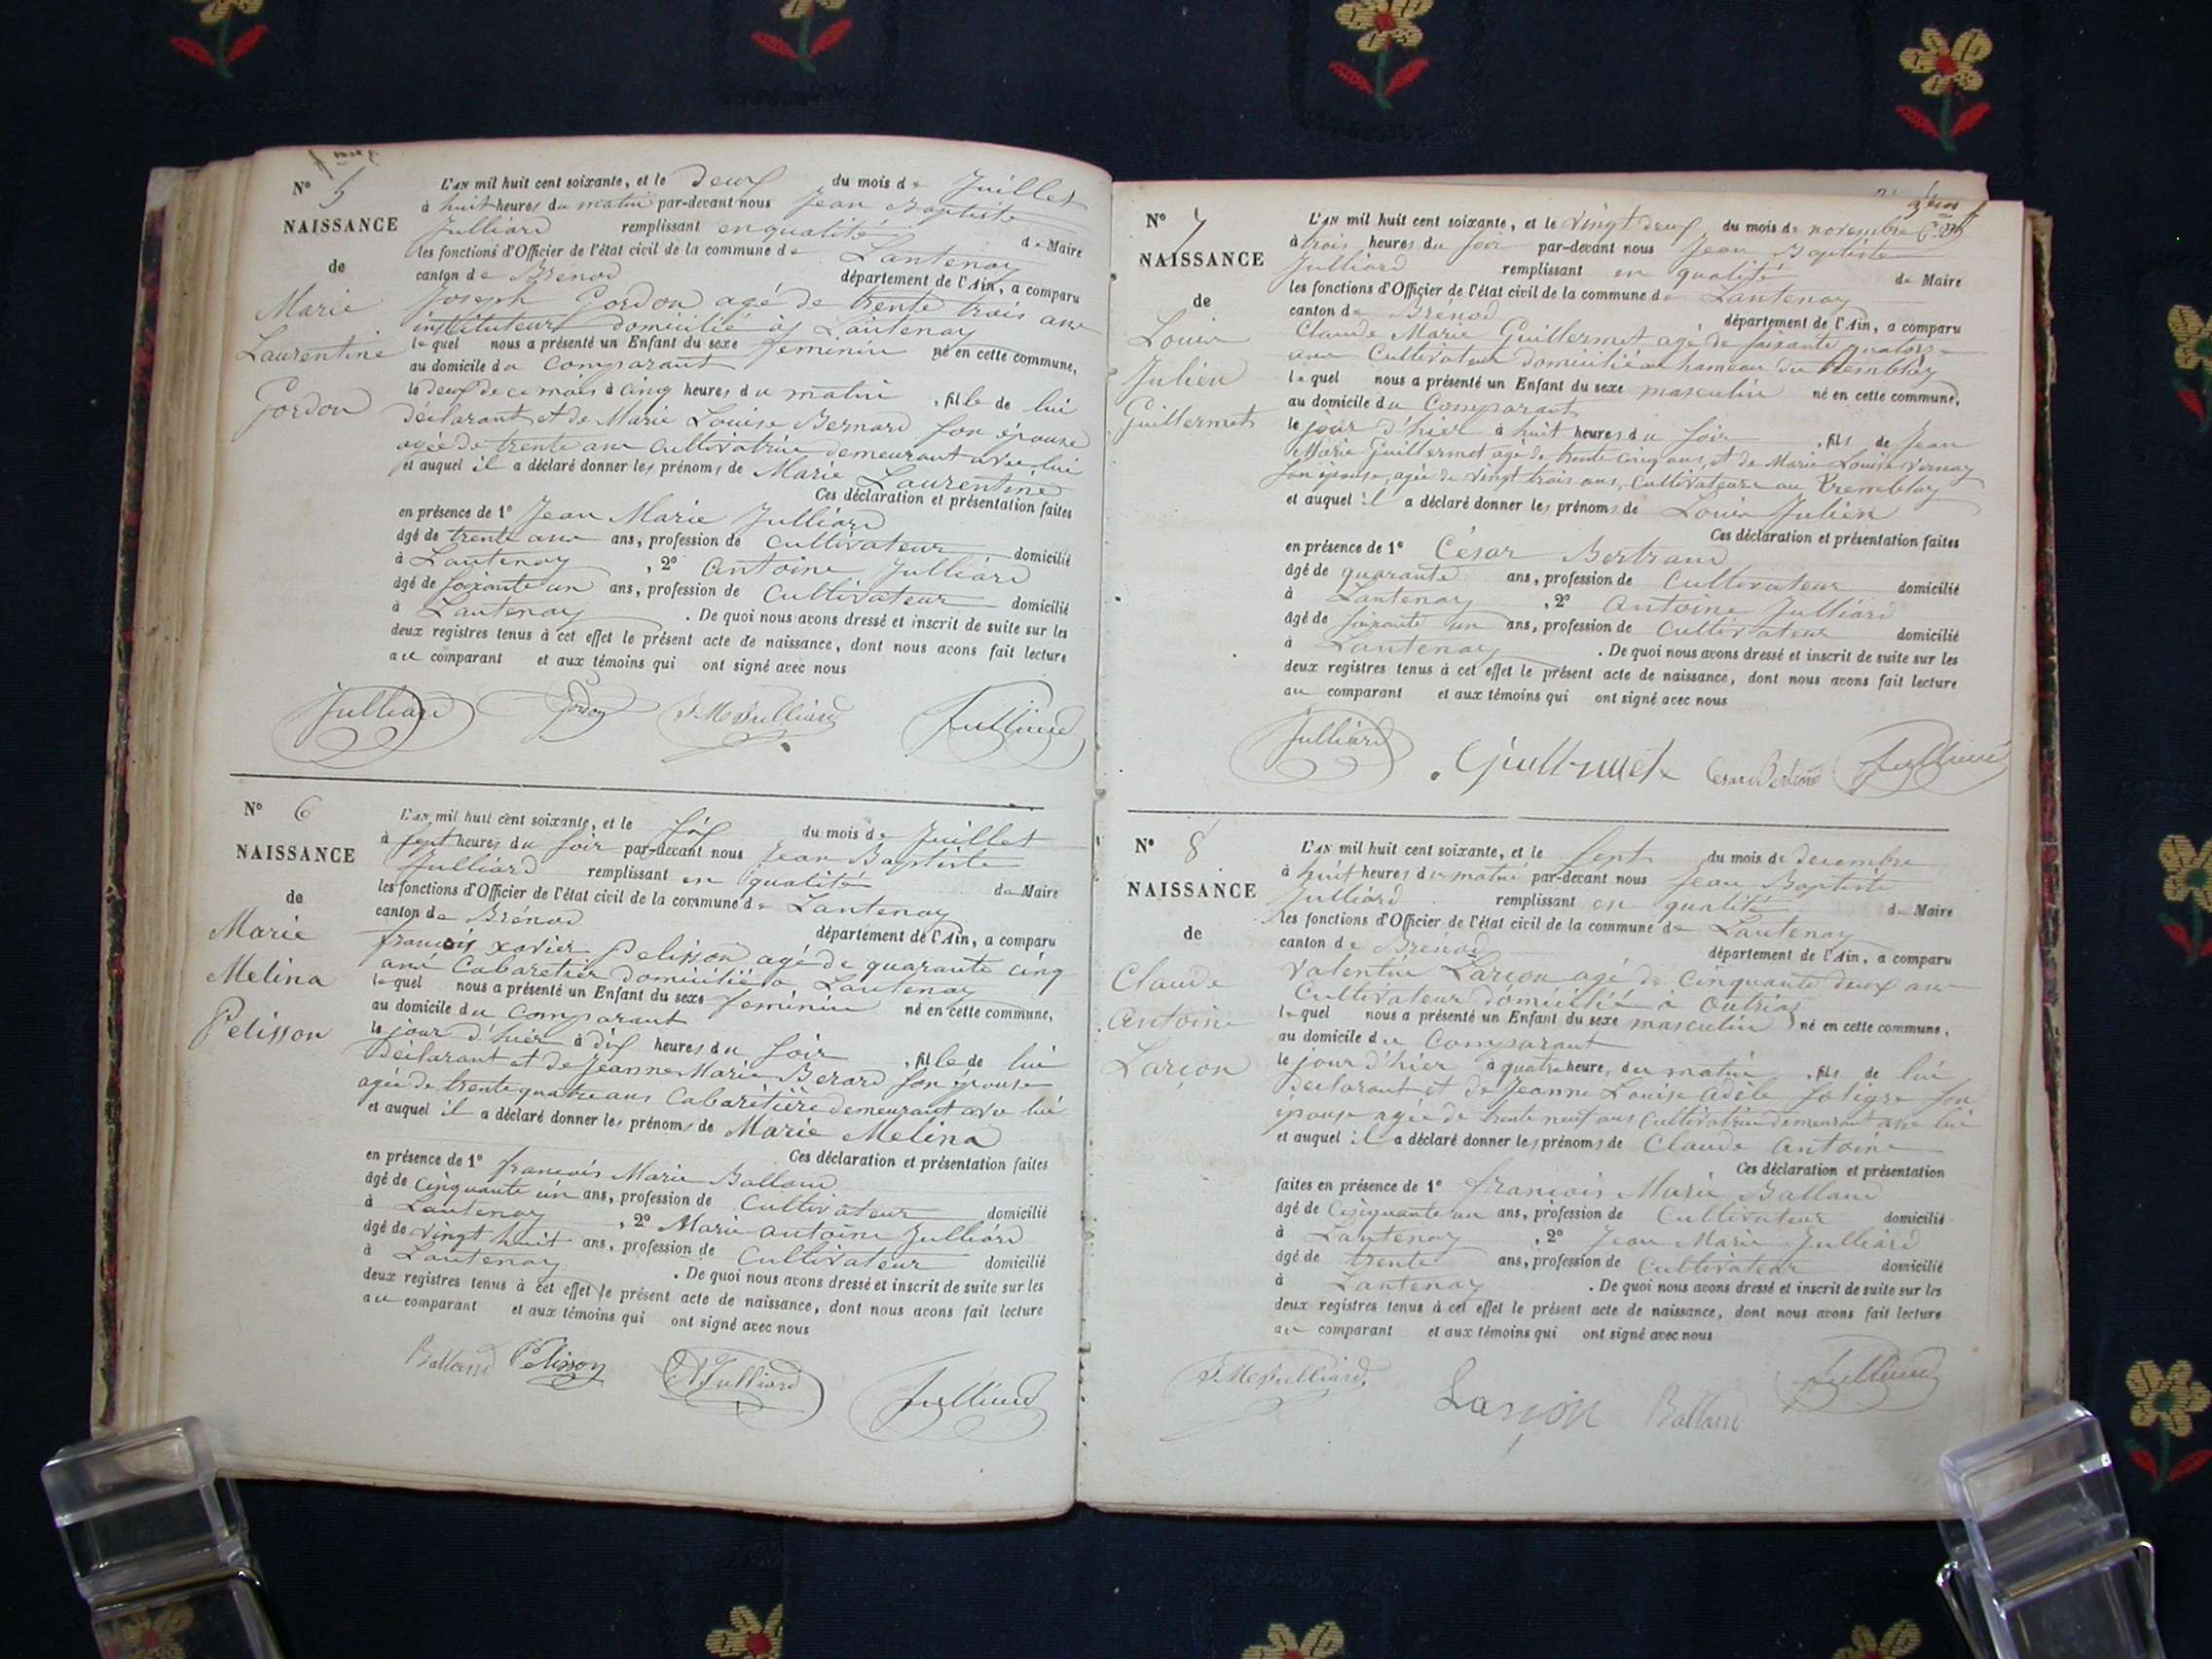 N° 5
NAISSANCE
de
Marie
Laurentine
Gordon
L'AN mil huit cent soixante, et le deux du mois de Juillet
à huit heures du matin par-devant nous Jean Baptiste
Julliard remplissant en qualité de Maire
les fonctions d'Officier de l'état civil de la commune de Lantenay
canton de Brénod département de l'Ain, a comparu
Joseph Gordon agé de trente trois ans
instituteur domicilié à Lantenay
lequel nous a présenté un Enfant du sexe feminin né en cette commune,
au domicile du Comparant
le deux de ce mois à cinq heures du matin , fille de lui
déclarant et de Marie Louise Bernard son épouse
agée de trente ans Cultivatrice demeurant avec lui
et auquel il a déclaré donner les prénoms de Marie Laurentine
Ces déclaration et présentation faites
en présence de 1° Jean Marie Julliard
âgé de trente ans ans, profession de Cultivateur domicilié
à Lantenay , 2° Antoine Julliard
âgé de soixante un ans, profession de Cultivateur domicilié
à Lantenay . De quoi nous avons dressé et inscrit de suite sur les
deux registres tenus à cet effet le présent acte de naissance, dont nous avons fait lecture
au comparant et aux témoins qui ont signé avec nous
Julliard Gordon J M Julliard Julliard
N° 6
NAISSANCE
de
Marie
Melina
Pelisson
L'AN mil huit cent soixante, et le six du mois de Juillet
à sept heures du soir par-devant nous Jean Baptiste
Julliard remplissant en qualité de Maire
les fonctions d'Officier de l'état civil de la commune de Lantenay
canton de Brénod département de l'Ain, a comparu
françois xavier Pelisson agé de quarante cinq
ans Cabaretier domicilié à Lantenay
lequel nous a présenté un Enfant du sexe feminin né en cette commune,
au domicile du Comparant
le jour d'hier à dix heures du soir , fille de lui
déclarant et de Jeanne Marie Berard son épouse
agée de trente quatre ans Cabaretière demeurant avec lui
et auquel il a déclaré donner les prénoms de Marie Melina
Ces déclaration et présentation faites
en présence de 1° françois Marie Balland
âgé de Cinquante un ans, profession de Cultivateur domicilié
à Lantenay , 2° Marie Antoine Julliard
âgé de vingt huit ans, profession de Cultivateur domicilié
à Lantenay . De quoi nous avons dressé et inscrit de suite sur les
deux registres tenus à cet effet le présent acte de naissance, dont nous avons fait lecture
au comparant et aux témoins qui ont signé avec nous
Balland Pelisson Julliard Julliard
N° 7
NAISSANCE
de
Louis
Julien
Guillermet
L'AN mil huit cent soixante, et le vingt deux du mois de novembre
à trois heures du soir par-devant nous Jean Baptiste
Julliard remplissant en qualité de Maire
les fonctions d'Officier de l'état civil de la commune de Lantenay
canton de Brénod département de l'Ain, a comparu
Claude Marie Guillermet agé de soixante quatorze
ans Cultivateur domicilié au hameau du Tremblay
lequel nous a présenté un Enfant du sexe masculin né en cette commune,
au domicile du Comparant
le jour d'hier à huit heures du soir , fils de Jean
Marie Guillermet agé de trente cinq ans, et de Marie Louise Vernay
son épouse, agée de vingt trois ans, Cultivateurs au Tremblay
et auquel il a déclaré donner les prénoms de Louis Julien
Ces déclaration et présentation faites
en présence de 1° César Bertrand
âgé de quarante ans, profession de Cultivateur domicilié
à Lantenay , 2° Antoine Julliard
âgé de soixante un ans, profession de Cultivateur domicilié
à Lantenay . De quoi nous avons dressé et inscrit de suite sur les
deux registres tenus à cet effet le présent acte de naissance, dont nous avons fait lecture
au comparant et aux témoins qui ont signé avec nous
Julliard Guillermet Cesar Bertrand Julliard
N° 8
NAISSANCE
de
Claude
Antoine
Larçon
L'AN mil huit cent soixante, et le sept du mois de decembre
à huit heures du matin par-devant nous Jean Baptiste
Julliard remplissant en qualité de Maire
les fonctions d'Officier de l'état civil de la commune de Lantenay
canton de Brénod département de l'Ain, a comparu
Valentin Larçon agé de Cinquante deux ans
Cultivateur domicilié à Outriaz
lequel nous a présenté un Enfant du sexe masculin né en cette commune,
au domicile du Comparant
le jour d'hier à quatre heures du matin , fils de lui
déclarant et de Jeanne Louise Adèle son
épouse agée de trente neuf ans Cultivatrice demeurant avec lui
et auquel il a déclaré donner les prénoms de Claude Antoine
Ces déclaration et présentation
faites en présence de 1° françois Marie Balland
âgé de Cinquante un ans, profession de Cultivateur domicilié
à Lantenay , 2° Jean Marie Julliard
âgé de trente ans, profession de Cultivateur domicilié
à Lantenay . De quoi nous avons dressé et inscrit de suite sur les
deux registres tenus à cet effet le présent acte de naissance, dont nous avons fait lecture
au comparant et aux témoins qui ont signé avec nous
J M Julliard Larçon Balland Julliard